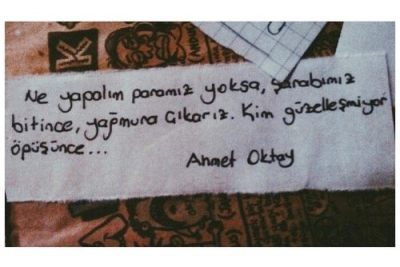 Ne yapalım paramız yoksa, şarabımız
bitince, yağmura çıkarız. Kim güzelleşmiyor
öpüşünce...
Ahmet Oktay